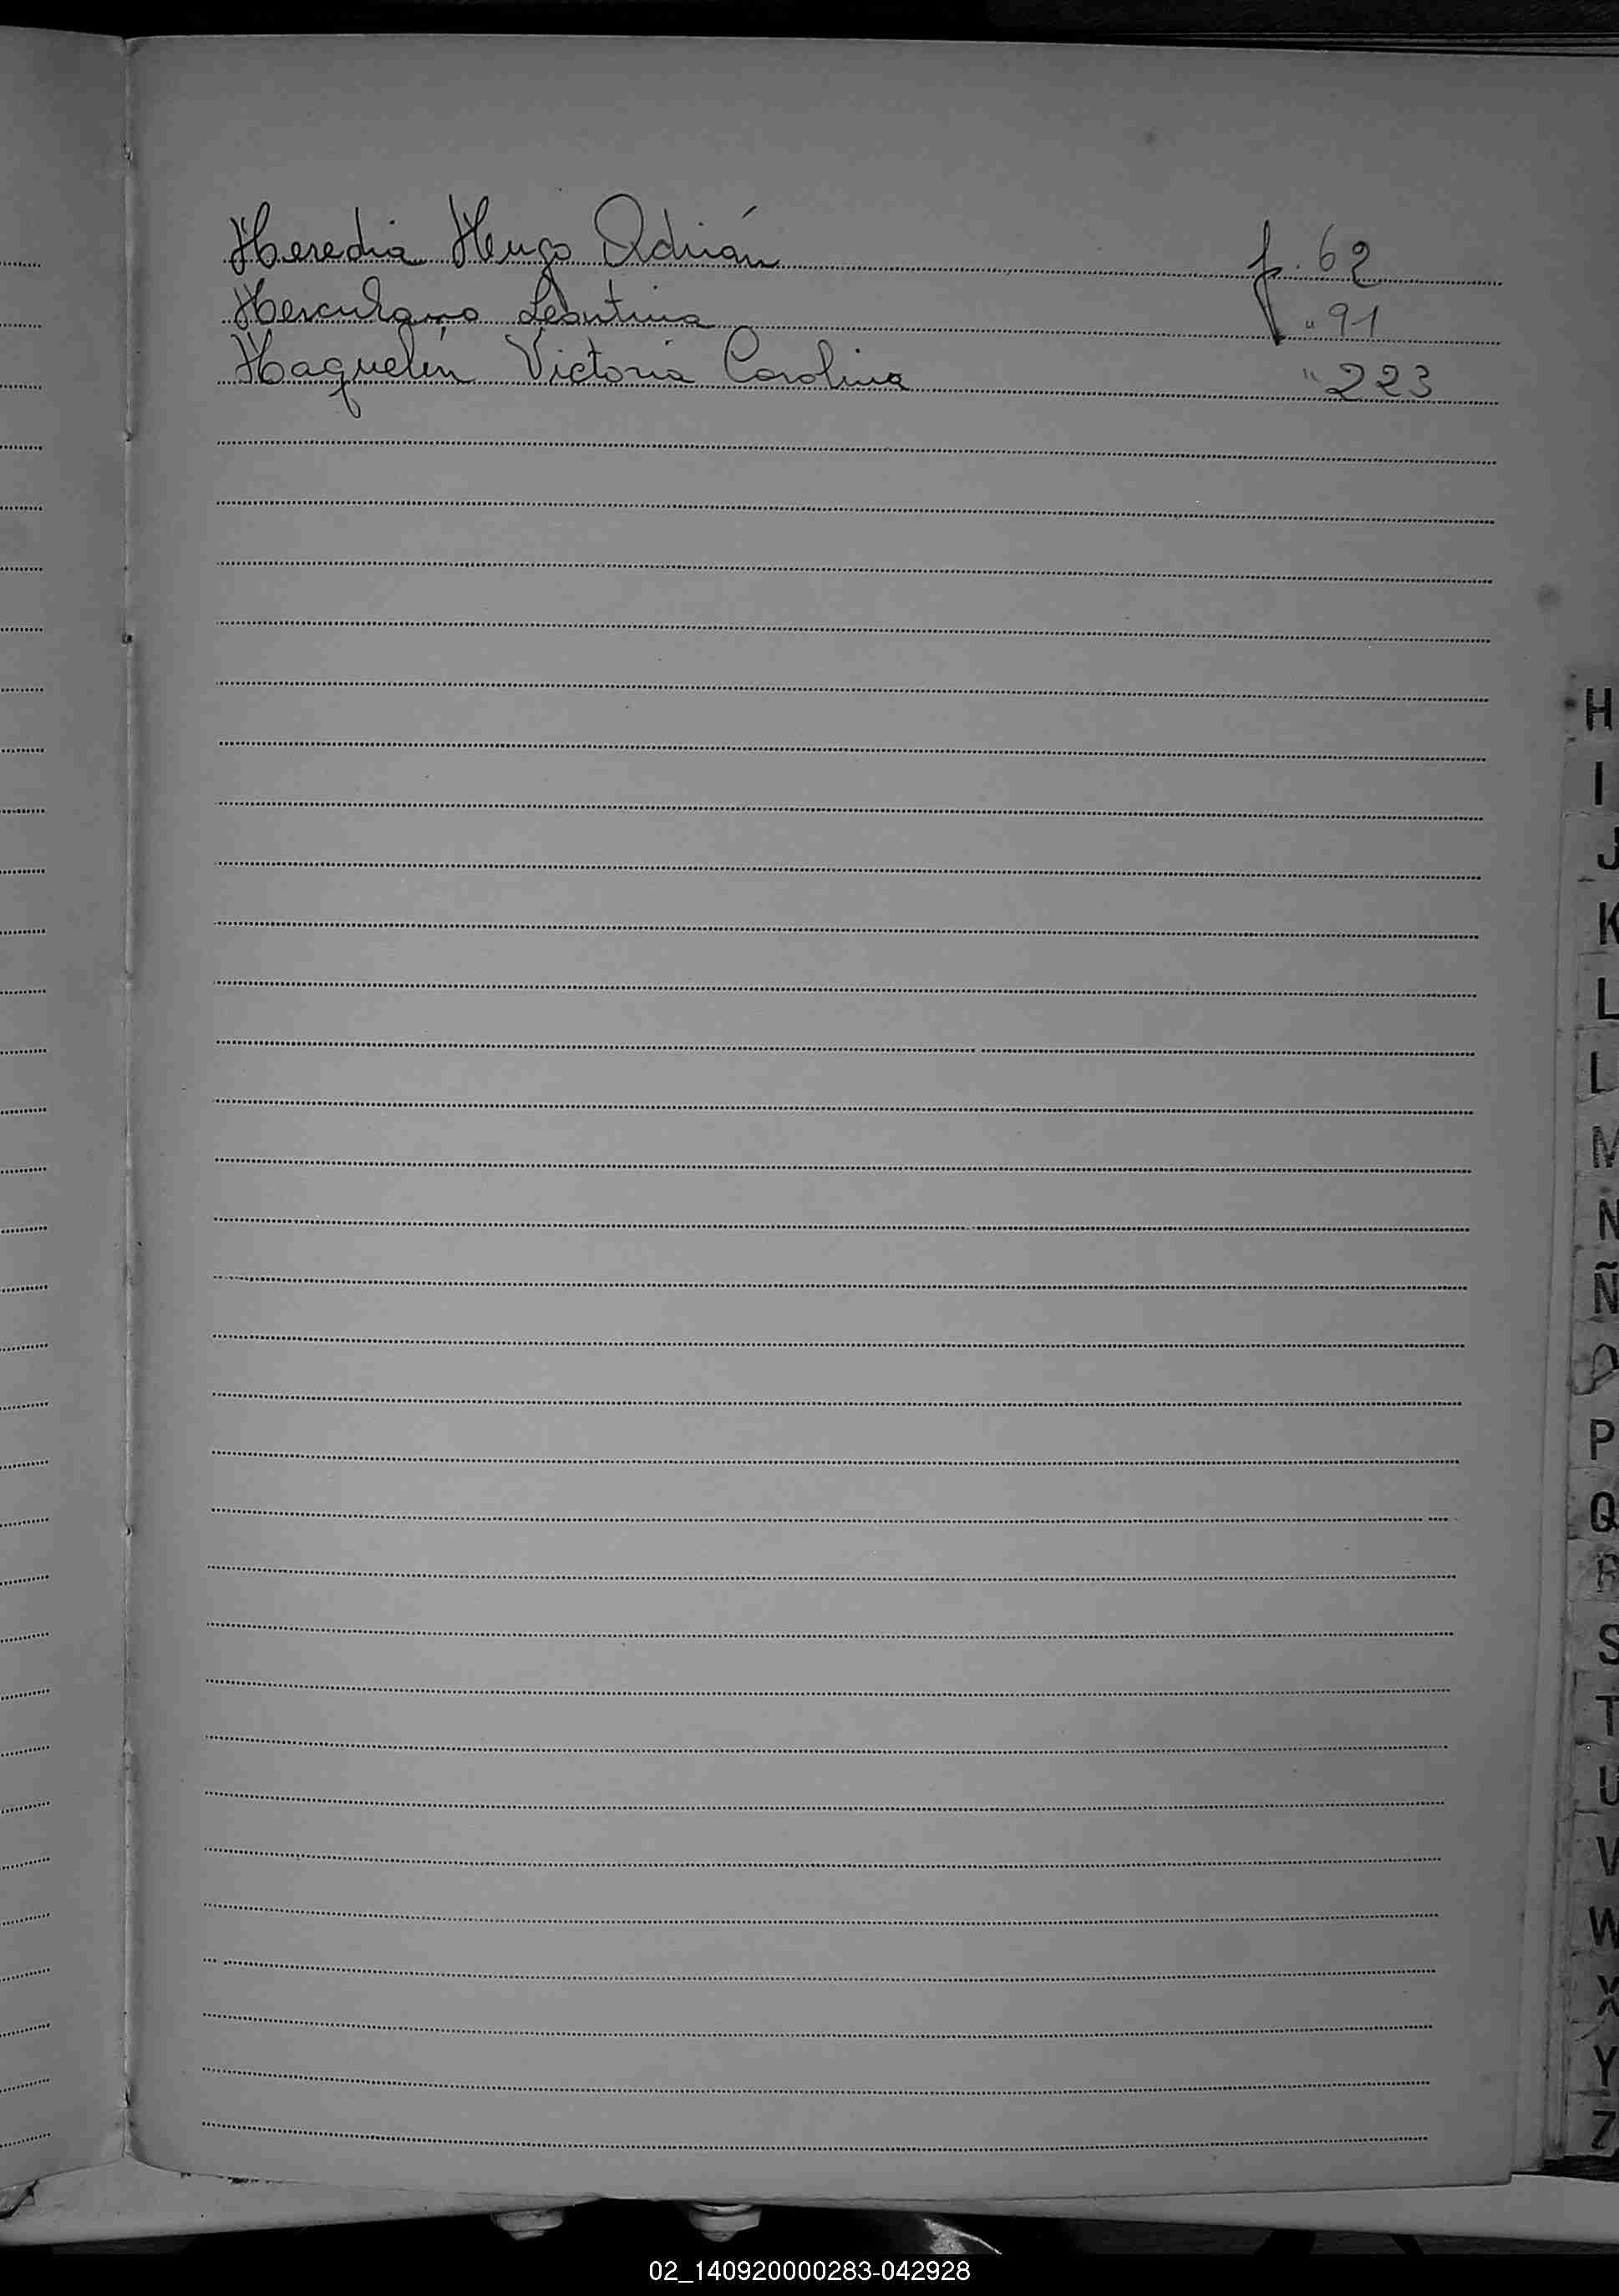 Heredia Hugo Adrián f. 62
Herculano Leontina " 91
Haquelín Victoria Carolina " 223
H
I
J
K
L
L
M
N
Ñ
O
P
Q
R
S
T
U
V
W
X
Y
Z
02_140920000283-042928